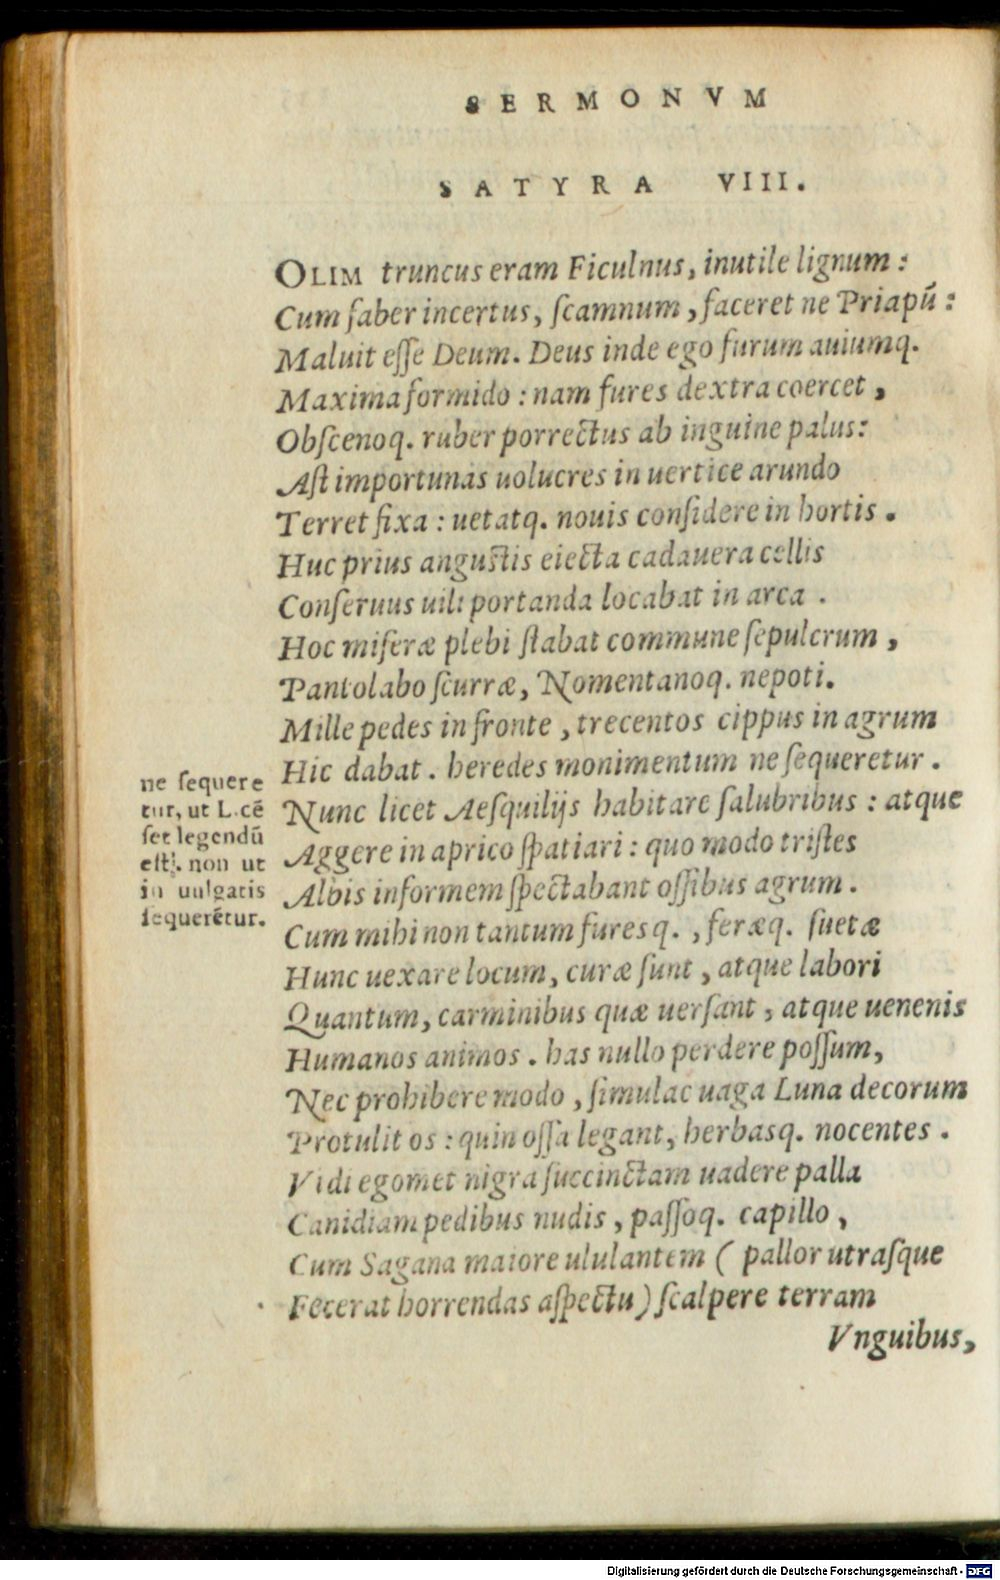 SERMONVM
SATYRA VIII.
OLIM truncus eram Ficulnus, inutile lignum :
Cum faber incertus, ſcamnum, faceret ne Priapū :
Maluit eſſe Deum. Deus inde ego furum auiumq.
Maxima formido : nam fures dextra coercet,
Obſcenoq. ruber porrectus ab inguine palus:
Aſt importunas uolucres in uertice arundo
Terret fixa : uetatq. nouis conſidere in hortis.
Huc prius anguſtis eiecta cadauera cellis
Conſeruus uili portanda locabat in arca.
Hoc miſeræ plebi ſtabat commune ſepulcrum,
Pantolabo ſcurræ, Nomentanoq. nepoti.
Mille pedes in fronte, trecentos cippus in agrum
Hic dabat. heredes monimentum ne ſequeretur.
Nunc licet Aeſquilijs habitare ſalubribus : atque
Aggere in aprico ſpatiari : quo modo triſtes
Albis informem ſpectabant oſſibus agrum.
Cum mihi non tantum furesq., feræq. ſuetæ
Hunc uexare locum, curæ ſunt, atque labori
Quantum, carminibus quæ uerſant, atque uenenis
Humanos animos. has nullo perdere poſſum,
Nec prohibere modo, ſimulac uaga Luna decorum
Protulit os : quin oſſa legant, herbasq. nocentes.
Vidi egomet nigra ſuccinctam uadere palla
Canidiam pedibus nudis, paſſoq. capillo,
Cum Sagana maiore ululantem ( pallor utraſque
Fecerat horrendas aſpectu) ſcalpere terram
Vnguibus,
ne ſequere
tur, ut L.cē
ſet legendū
eſt. non ut
in uulgatis
ſequerētur.
Digitalisierung gefördert durch die Deutsche Forschungsgemeinschaft - DFG